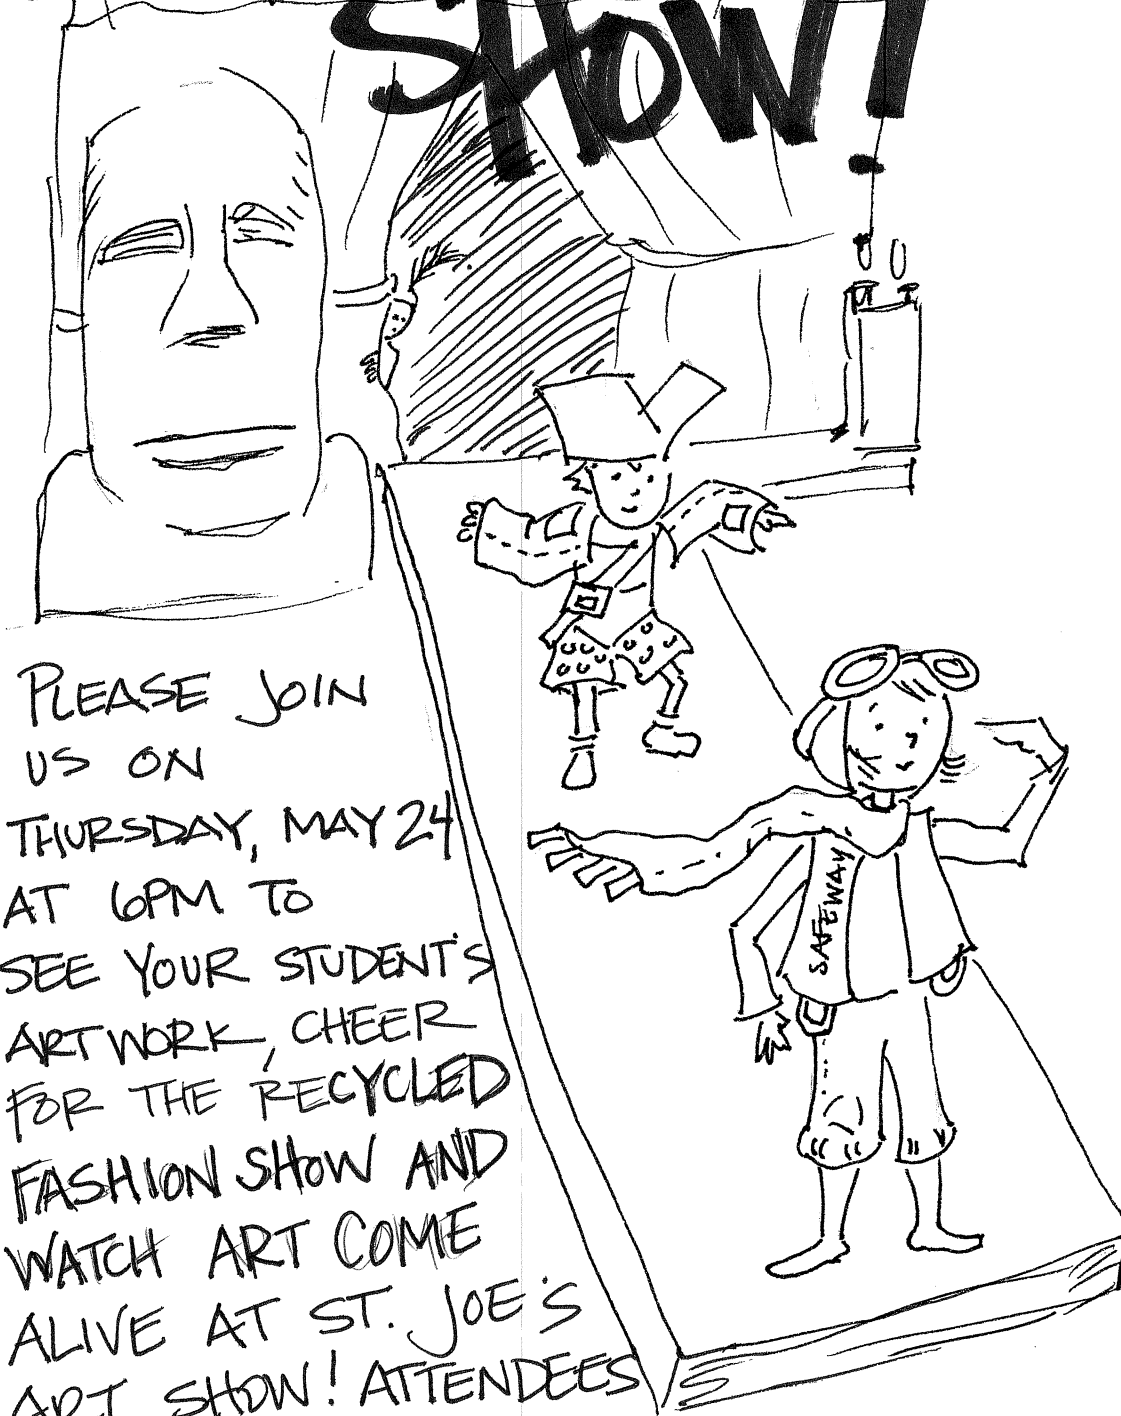 SHOW!
PLEASE JOIN
US ON
THURSDAY, MAY 24
AT 6PM TO
SEE YOUR STUDENT'S
ARTWORK, CHEER
FOR THE RECYCLED
FASHION SHOW AND
WATCH ART COME
ALIVE AT ST. JOE'S
ART SHOW! ATTENDEES
SAFEWAY